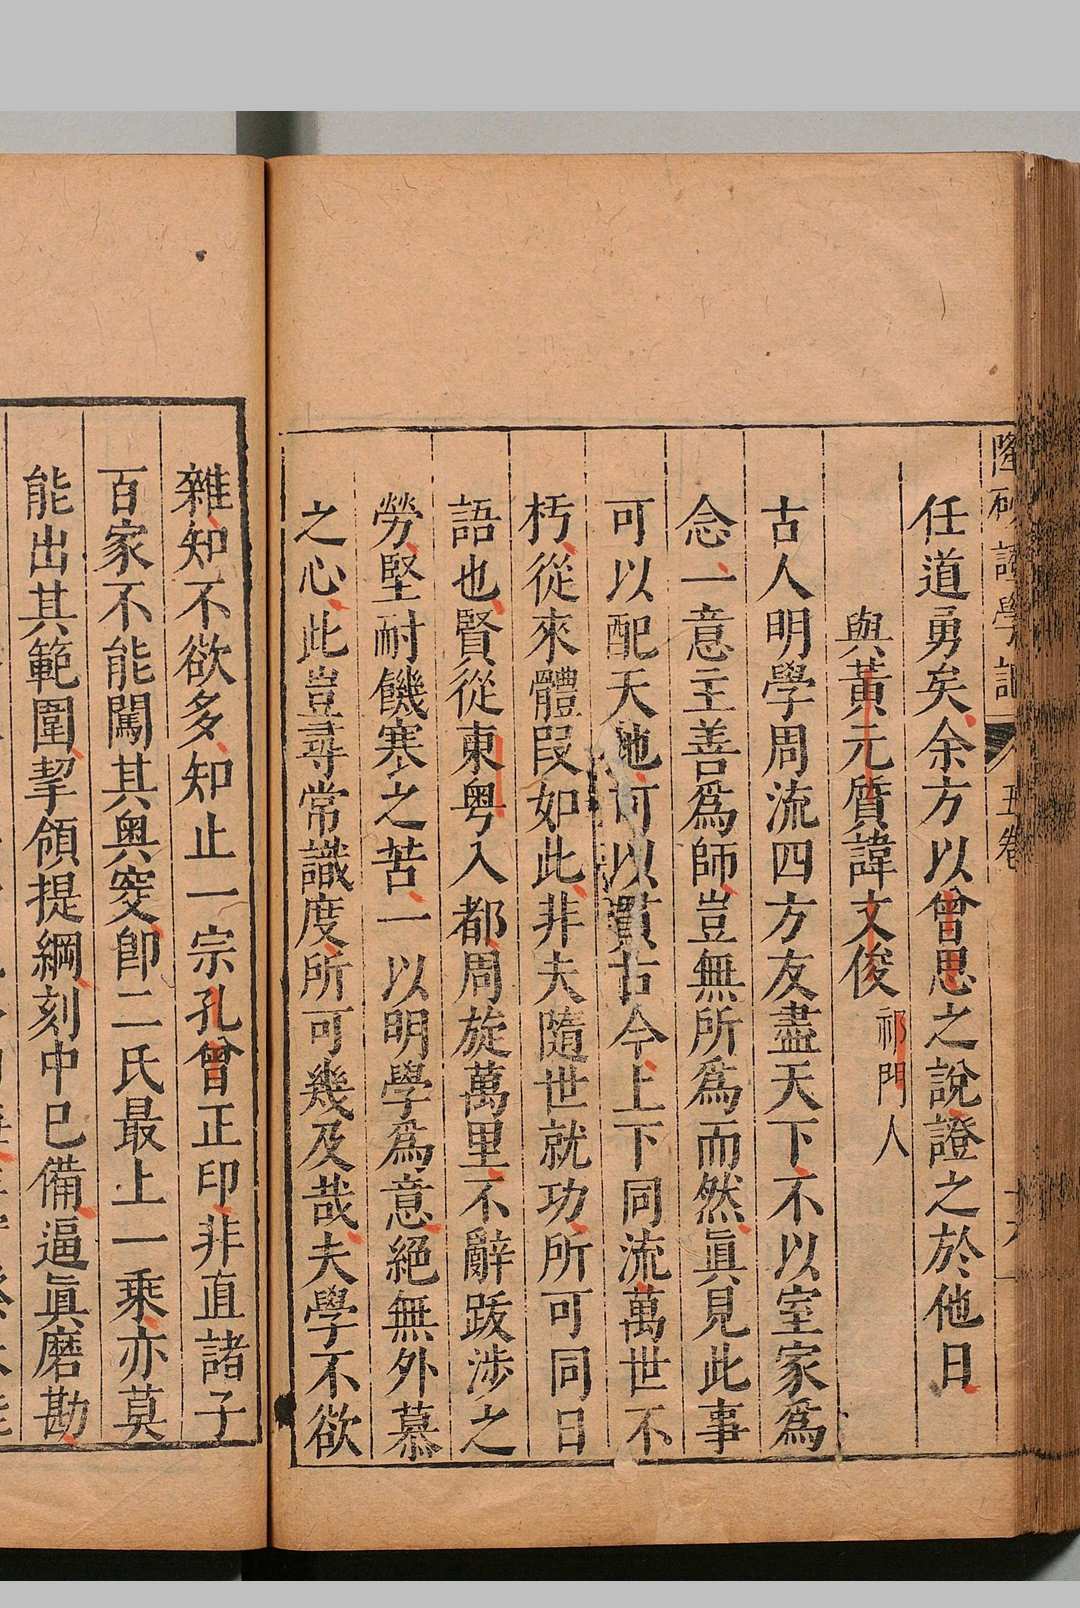 證學
五卷
任道勇矣余方以曾思之說證之於他日
與黃元質諱文俊祁門人
古人明學周流四方友盡天下不以室家為
念一意主善為師豈無所為而然眞見此事
可以配天地可以貫古今上下同流萬世不
朽從來體段如此非夫隨世就功所可同日
語也賢從東粵入都周旋萬里不辭跋涉之
勞堅耐饑寒之苦一以明學為意絕無外慕
之心此豈尋常識度所可幾及哉夫學不欲
雜知不欲多知止一宗孔曾正印非直諸子
百家不能闖其奧窔卽二氏最上一乘亦莫
能出其範圍挈領提綱刻中已備逼眞磨勘